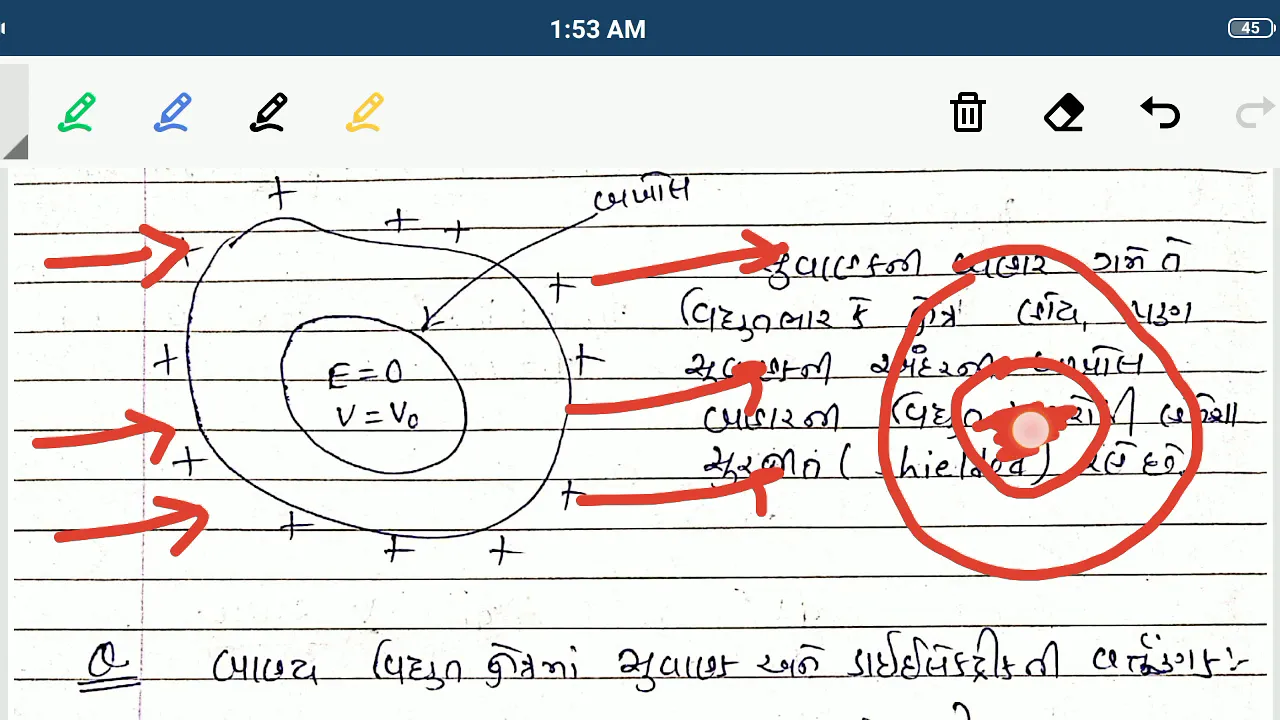 1:53 AM
45
બખોલ
E = 0
V = V₀
સુવાહકની બહાર ગમે તે
વિદ્યુતભાર કે ક્ષેત્ર હોય, પરંતુ
સુવાહકની અંદરની બખોલ
બહારની વિદ્યુત હંમેશા
સુરક્ષીત ( shielded ) રહે છે.
Q બાહ્ય વિદ્યુત ક્ષેત્રમાં સુવાહક અને ડાઈઈલેક્ટ્રીકની વર્તણૂંક :-